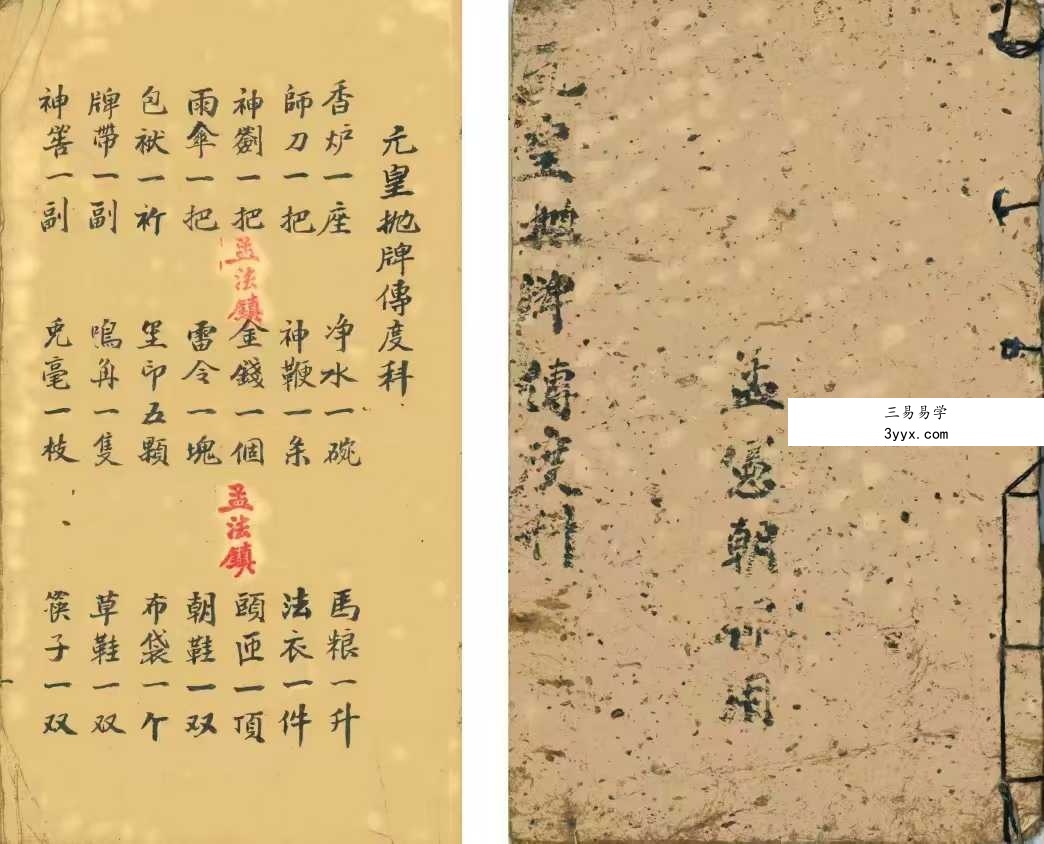 三易易学
3yyx.com
孟朝用
元皇抛牌傳度科
元皇抛牌傳度科
香炉一座 净水一碗 馬粮一升
師刀一把 神鞭一条 法衣一件
神劍一把 金錢一個 頭匝一頂
雨傘一把 雷令一塊 朝鞋一双
包袱一祈 坚印五顆 布袋一个
牌帶一副 鳴角一隻 草鞋一双
神筶一副 兎毫一枝 筷子一双
孟法鎮
孟法鎮